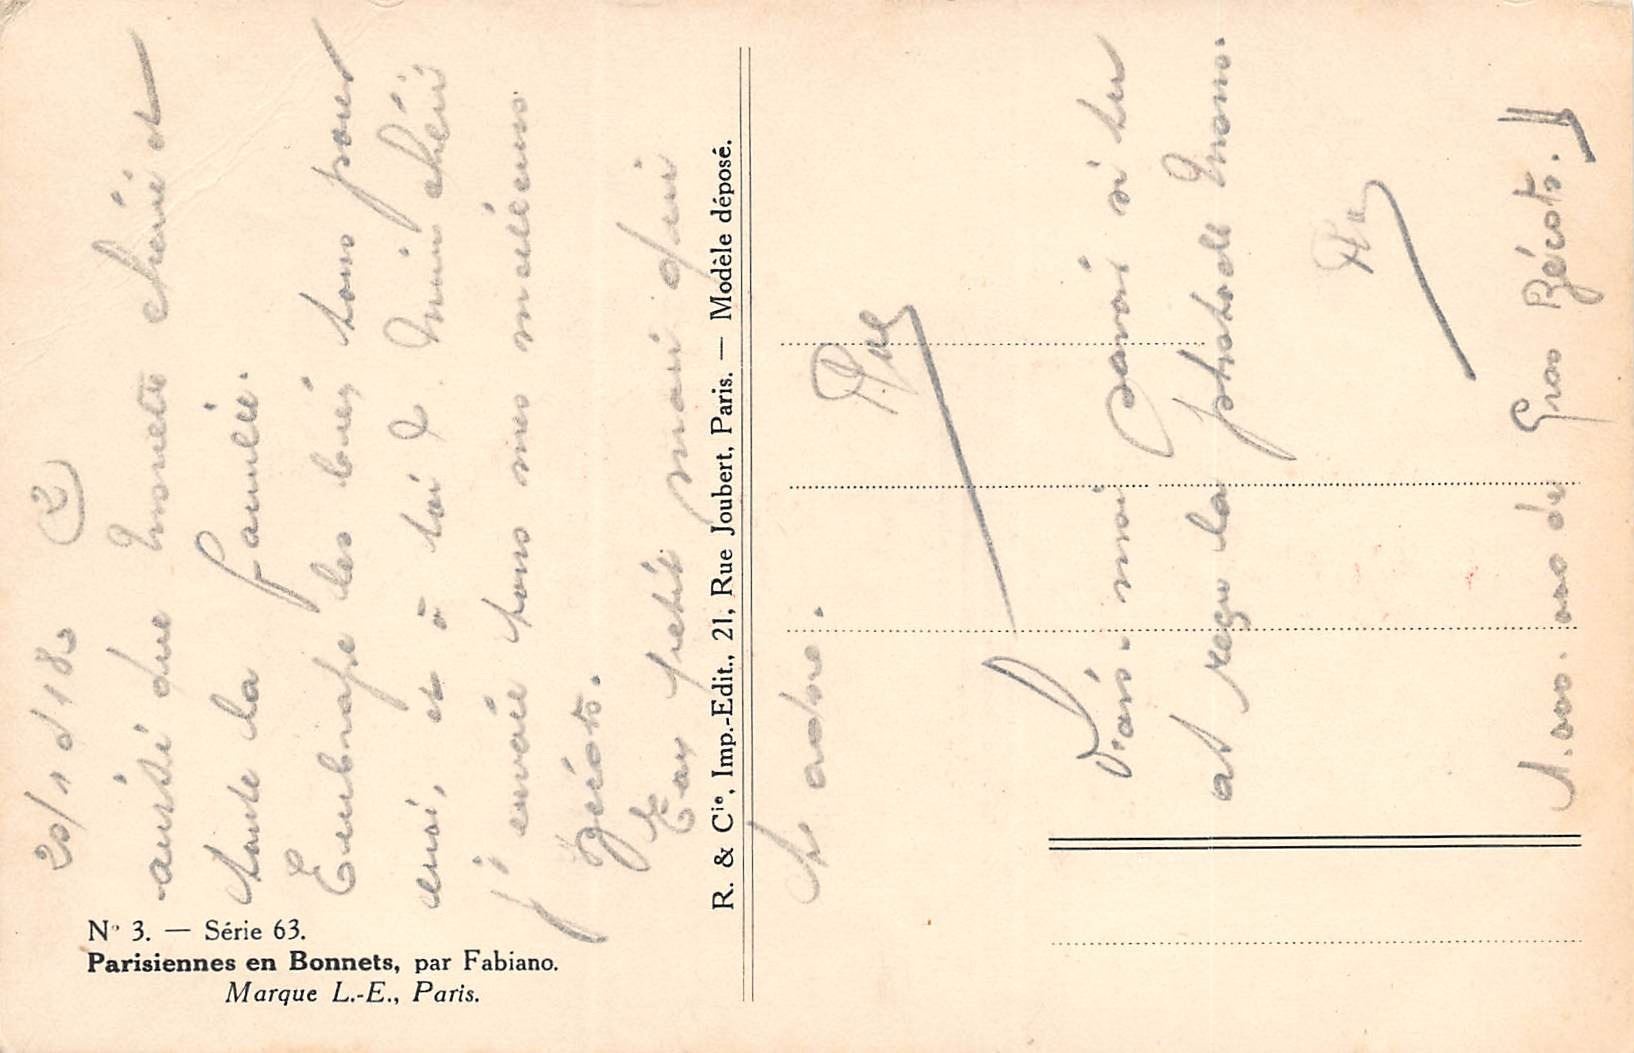 20/1 d 18h (2)
ainsi que Ninette chérie et
toute la famille.
Embrasse les bien tous pour
moi, et à toi Mimi chérie
j'envoie tous mes meilleurs
bécots.
Ton petit mari qui
t'adore.
Dis-moi si tu
as reçu la photo de
1.000.000 de Gros Bécots.
R. & Cie, Imp.-Edit., 21, Rue Joubert, Paris. — Modèle déposé.
N° 3. — Série 63.
Parisiennes en Bonnets, par Fabiano.
Marque L.-E., Paris.